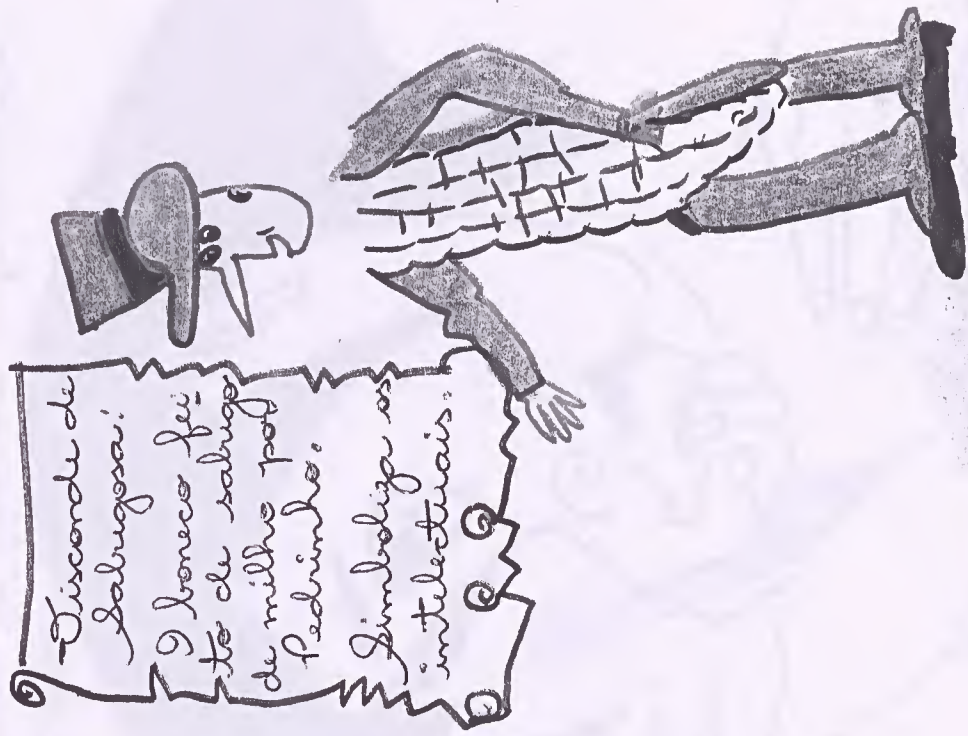 Visconde de
Sabugosa:
O boneco fei-
to de sabugo
de milho por
Pedrinho.
Simboliza os
intelectuais.